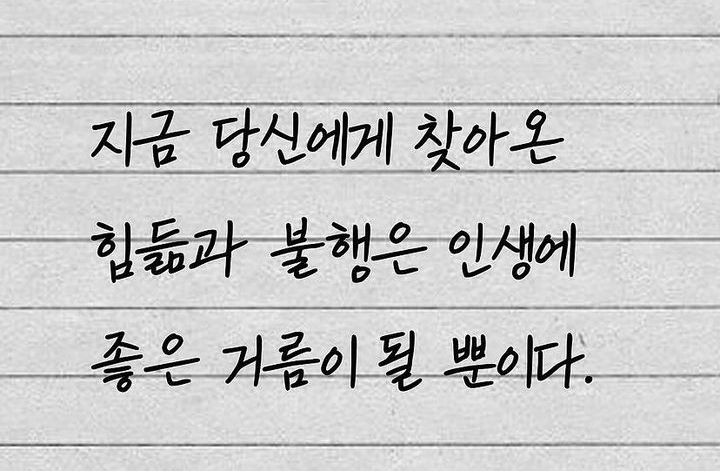 지금 당신에게 찾아온
힘듦과 불행은 인생에
좋은 거름이 될 뿐이다.